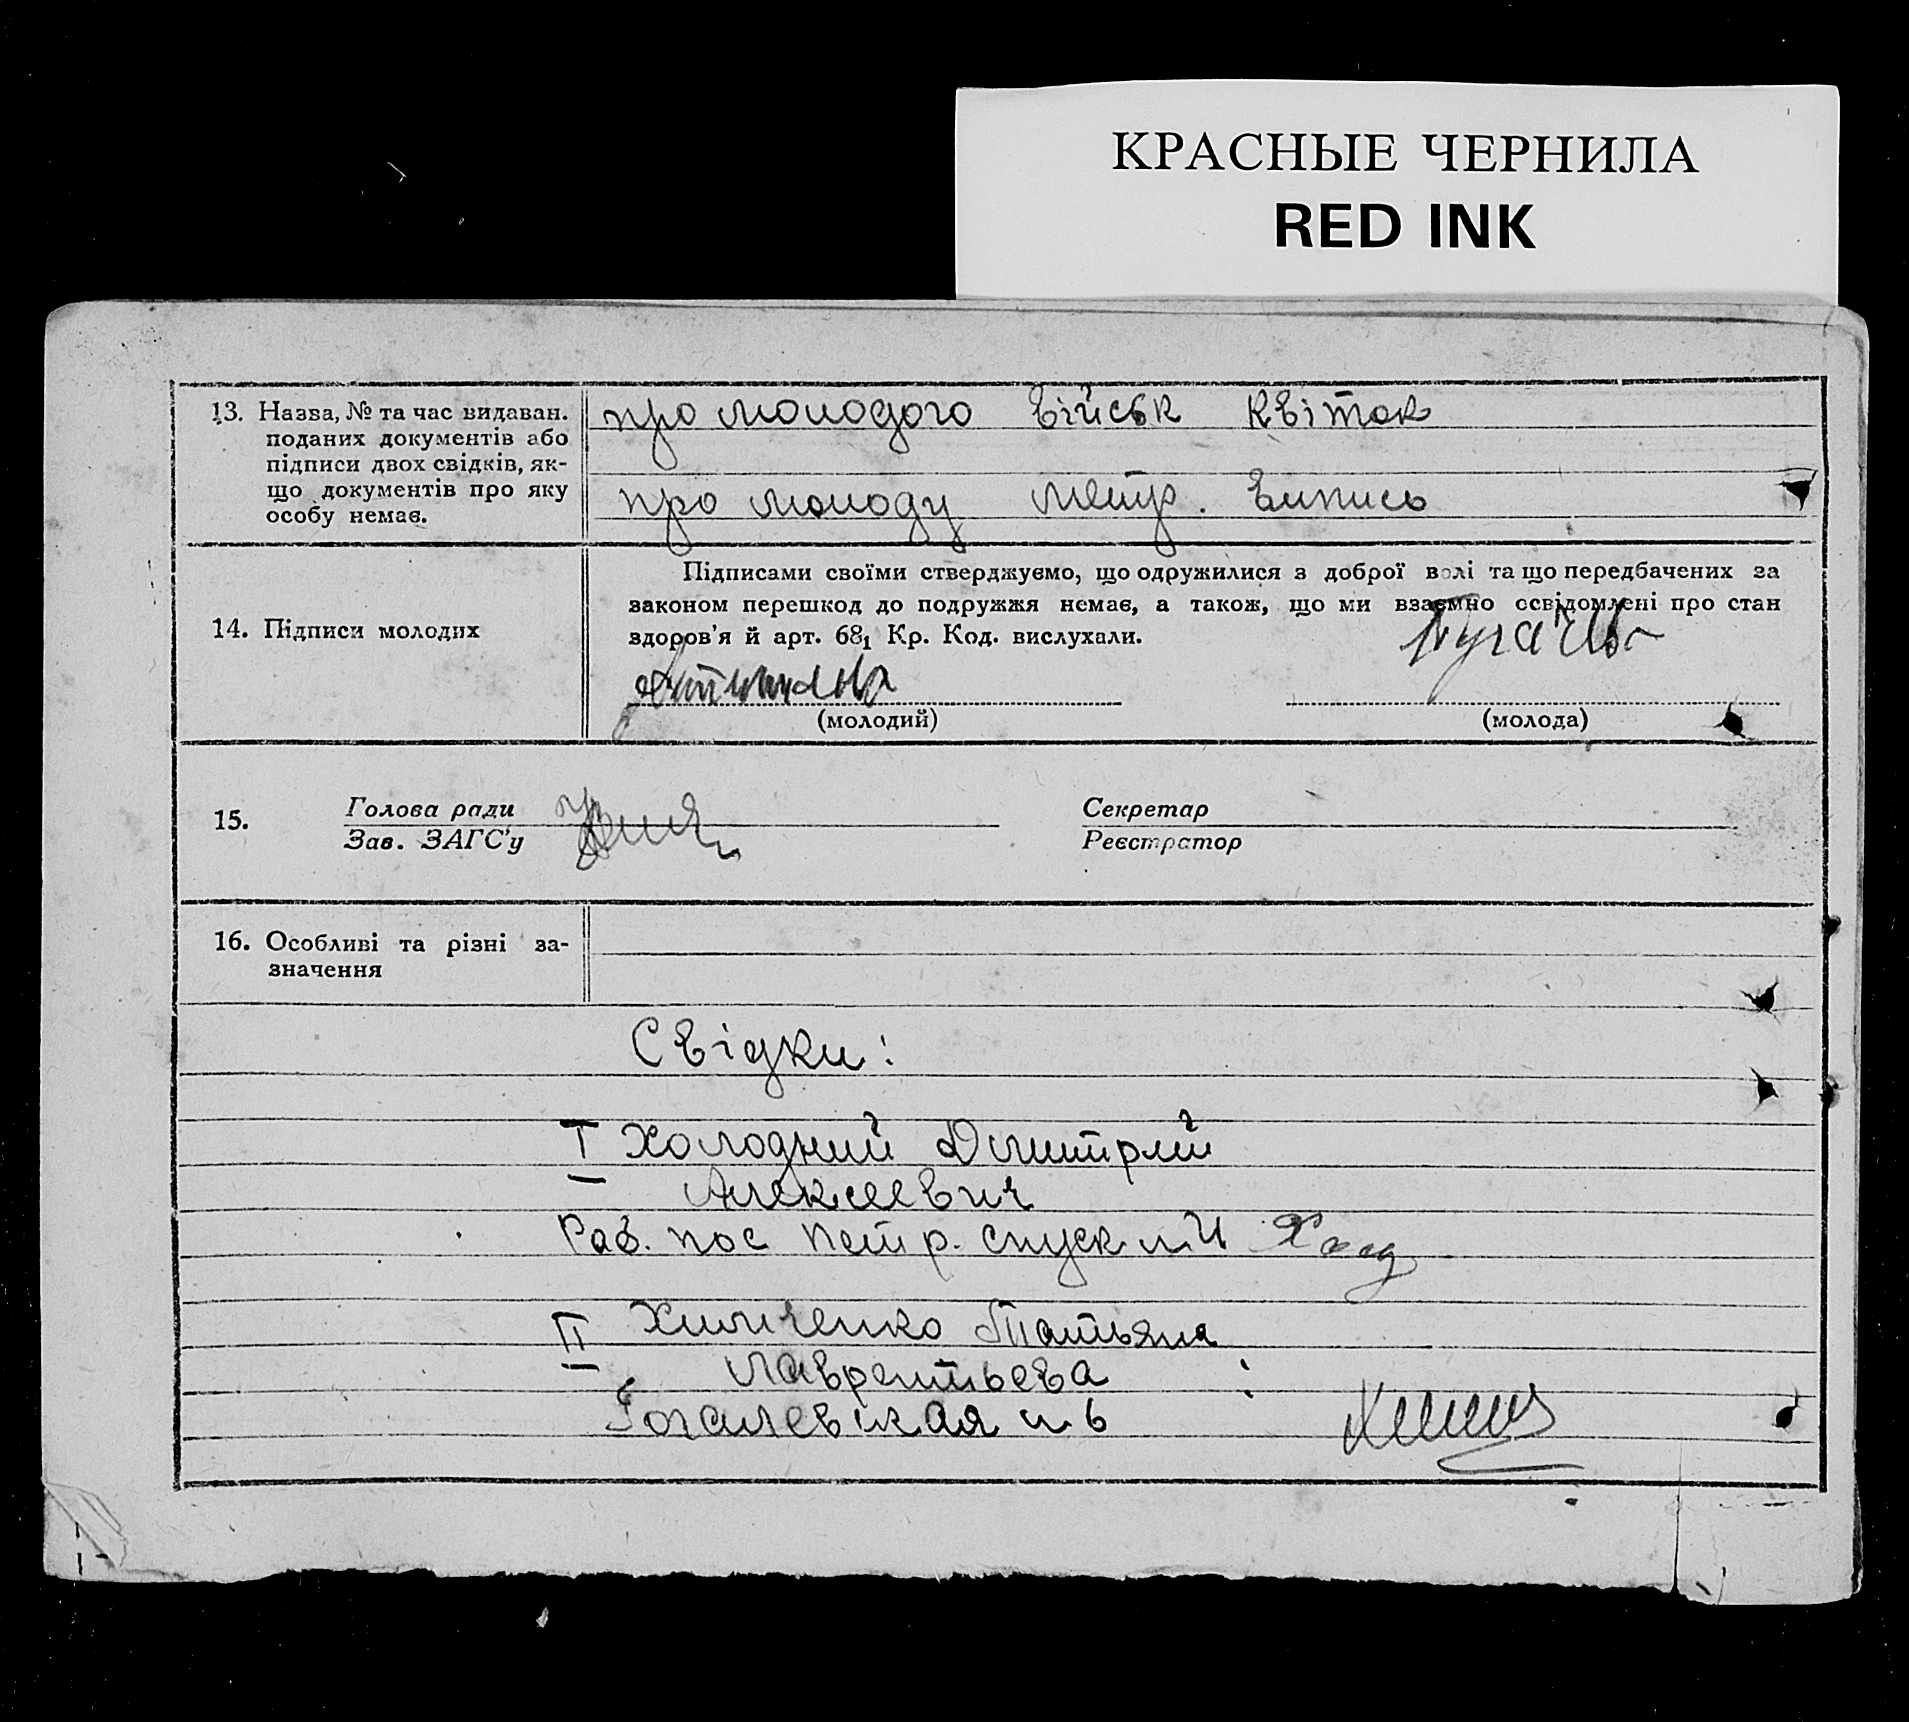 КРАСНЫЕ ЧЕРНИЛА
RED INK
13. Назва, № та час видаван. поданих документів або підписи двох свідків, як-
що документів про яку
особу немає.
про молодого військ квіток
про молоду метр. випись
14. Підписи молодих
Підписами своїми стверджуємо, що одружилися з доброї волі та що передбачених за
законом перешкод до подружжя немає, а також, що ми взаємно освідомлені про стан
здоров'я й арт. 68₁ Кр. Код. вислухали.
(молодий)
(молода)
15.
Голова ради
Зав. ЗАГС'у
Секретар
Реєстратор
16. Особливі та різні за-
значення
Свідки:
I Холодний Дмитрий
Алексеевич
Раб. пос Петр. спуск
Холод
II Химченко Татьяна
Лаврентьева